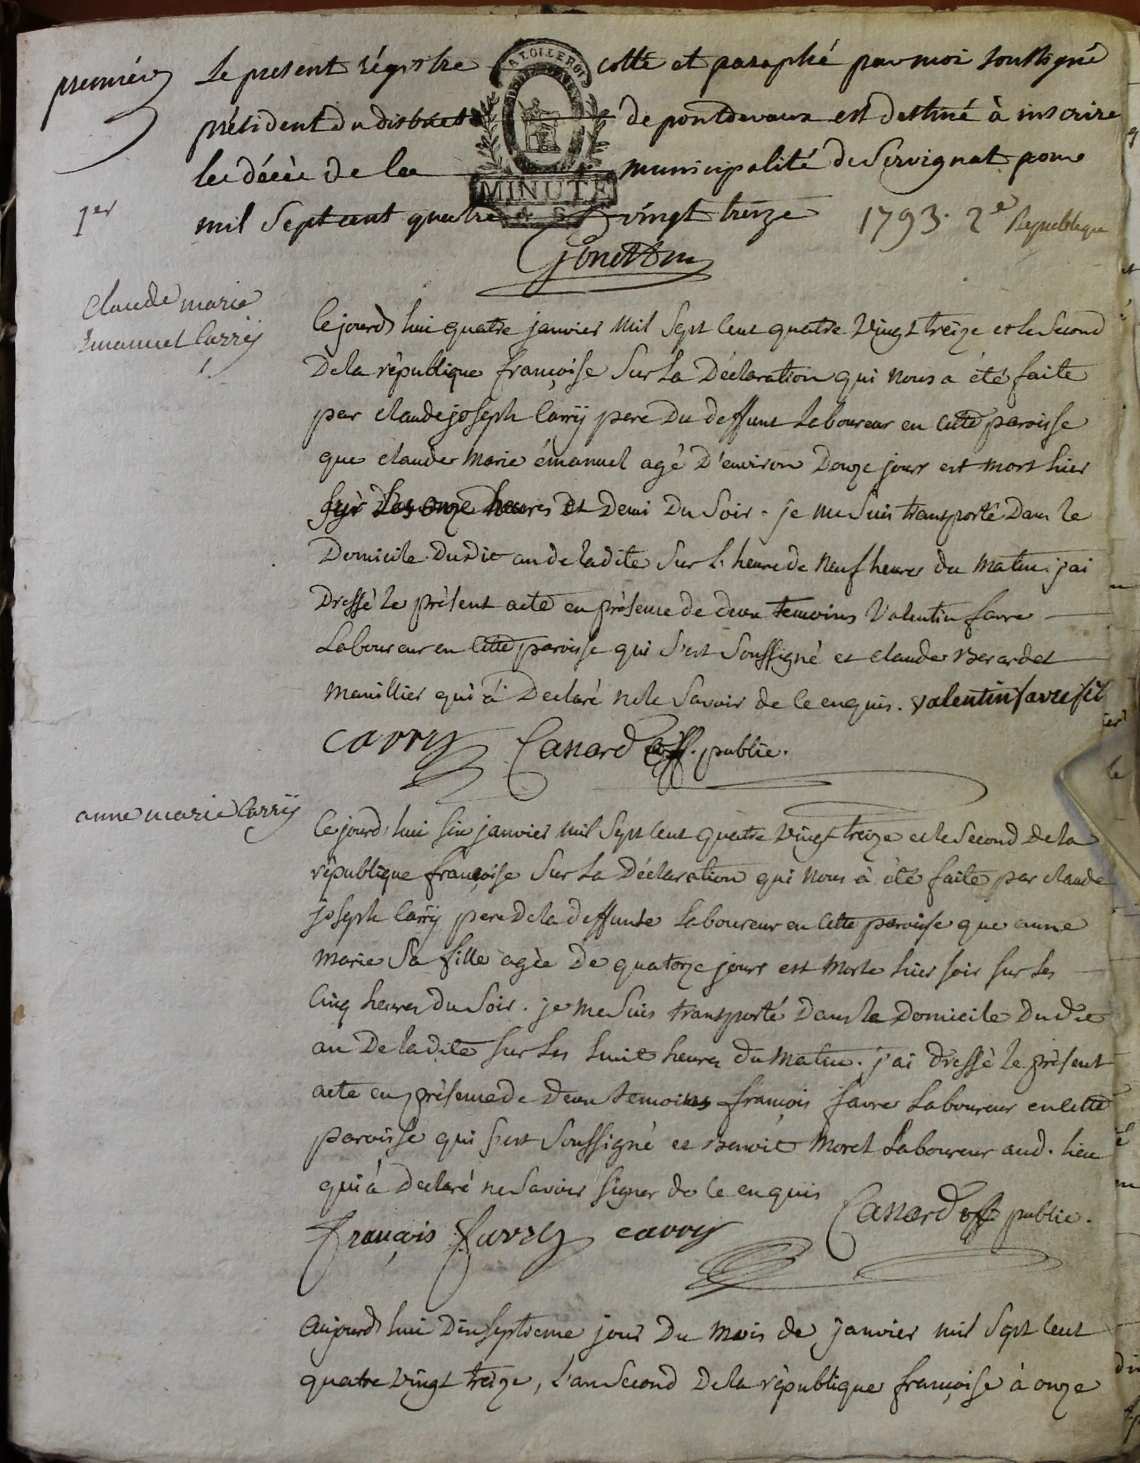 premier
Le present régistre cotté et paraphé par moi soussigné
président du district de pontdevaux est destiné à inscrire
les décès de la municipalité de Servignat pour
1er
mil sept cent quatre vingt treize 1793. 2e Republique
LA LOI LE ROI
MINUTE
4 S
claude marie
Emanuel Carrÿ
1
Cejourd'hui quatre janvier mil Sept Cent quatre Vingt treize et le Second
De la république françoise Sur La Déclaration qui Nous a été faite
par claude joseph Carrÿ pere Du deffunt Laboureur en Cette paroisse
que claude Marie émanuel agé D'environ Douze jours est mort hier
Sur Les onze heures Et Demi Du Soir. je me Suis transporté Dans le
Domicile Du Dit au de ladite Sur L'heure de Neuf heures du Matin. j'ai
Dressé le présent acte en présence de deux temoins Valentin favre
Laboureur en Cette paroisse qui S'est Soussigné et claude Berardet
Manillier qui à Declaré ne le Savoir de ce enquis. valentin favre
carry Canard off. public.
anne marie Carrÿ
Cejourd'hui six janvier mil Sept Cent quatre Vingt treize et le Second de la
république françoise Sur La Déclaration qui Nous à été faite par claude
joseph Carrÿ pere De la deffunte Laboureur en Cette paroisse que anne
Marie Sa fille agée De quatorze jours est Morte hier soir sur Les
Cinq heures Du Soir. je me Suis transporté Dans le Domicile Du Dit
au De la dite Sur Les huit heures Du Matin. j'ai dressé le présent
acte en présence de Deux temoins françois favre Laboureur en Cette
paroisse qui S'est Soussigné et Benoit Morel Laboureur aud. lieu
qui à Declaré ne Savoir signer de ce enquis
Canard off public.
françois favre carry
Aujourd'hui Dix Septieme jour Du Mois de janvier mil Sept Cent
quatre Vingt treize, L'an Second De la république françoise à onze